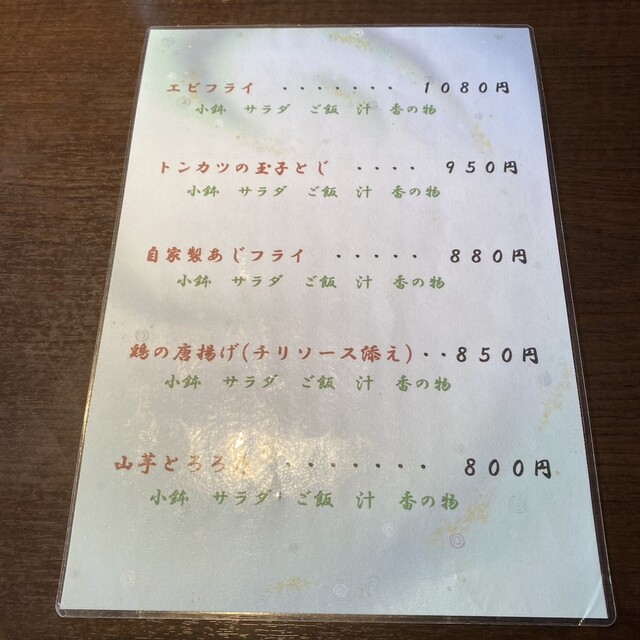 エビフライ ・・・・・・・ 1080円
小鉢 サラダ ご飯 汁 香の物
トンカツの玉子とじ ・・・・ 950円
小鉢 サラダ ご飯 汁 香の物
自家製あじフライ ・・・・・ 880円
小鉢 サラダ ご飯 汁 香の物
鶏の唐揚げ(チリソース添え)・・850円
小鉢 サラダ ご飯 汁 香の物
山芋とろろ ・・・・・・・・ 800円
小鉢 サラダ ご飯 汁 香の物